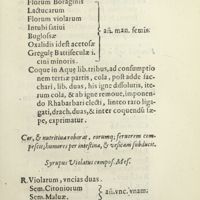 Florum Boraginis
Lactucarum
Florum violarum
Intubi satiui
Buglossæ
Oxalidis idest acetosæ
Gregulę Battisecula i.
cini minoris.
añ. man. semis.
Coque in Aquę lib. tribus, ad consumptio
nem tertiæ partis, cola, post adde sac
chari, lib. duas, his igne dissolutis, ite-
rum cola, & ab igne remoue, imponen-
do Rhabarbari electi, linteo raro liga-
gati, drach. duas, & inter coquendũ sæ-
pe, exprimatur.
Cor, & nutritiua roborat, eorumq; feruorem com-
pescit, humores per intestina, & vesicam subducit.
Syrupus Violatus compos. Mes.
R. Violarum, vncias duas.
Sem. Citoniorum
Sem. Maluæ.
añ. vnc. vnam: